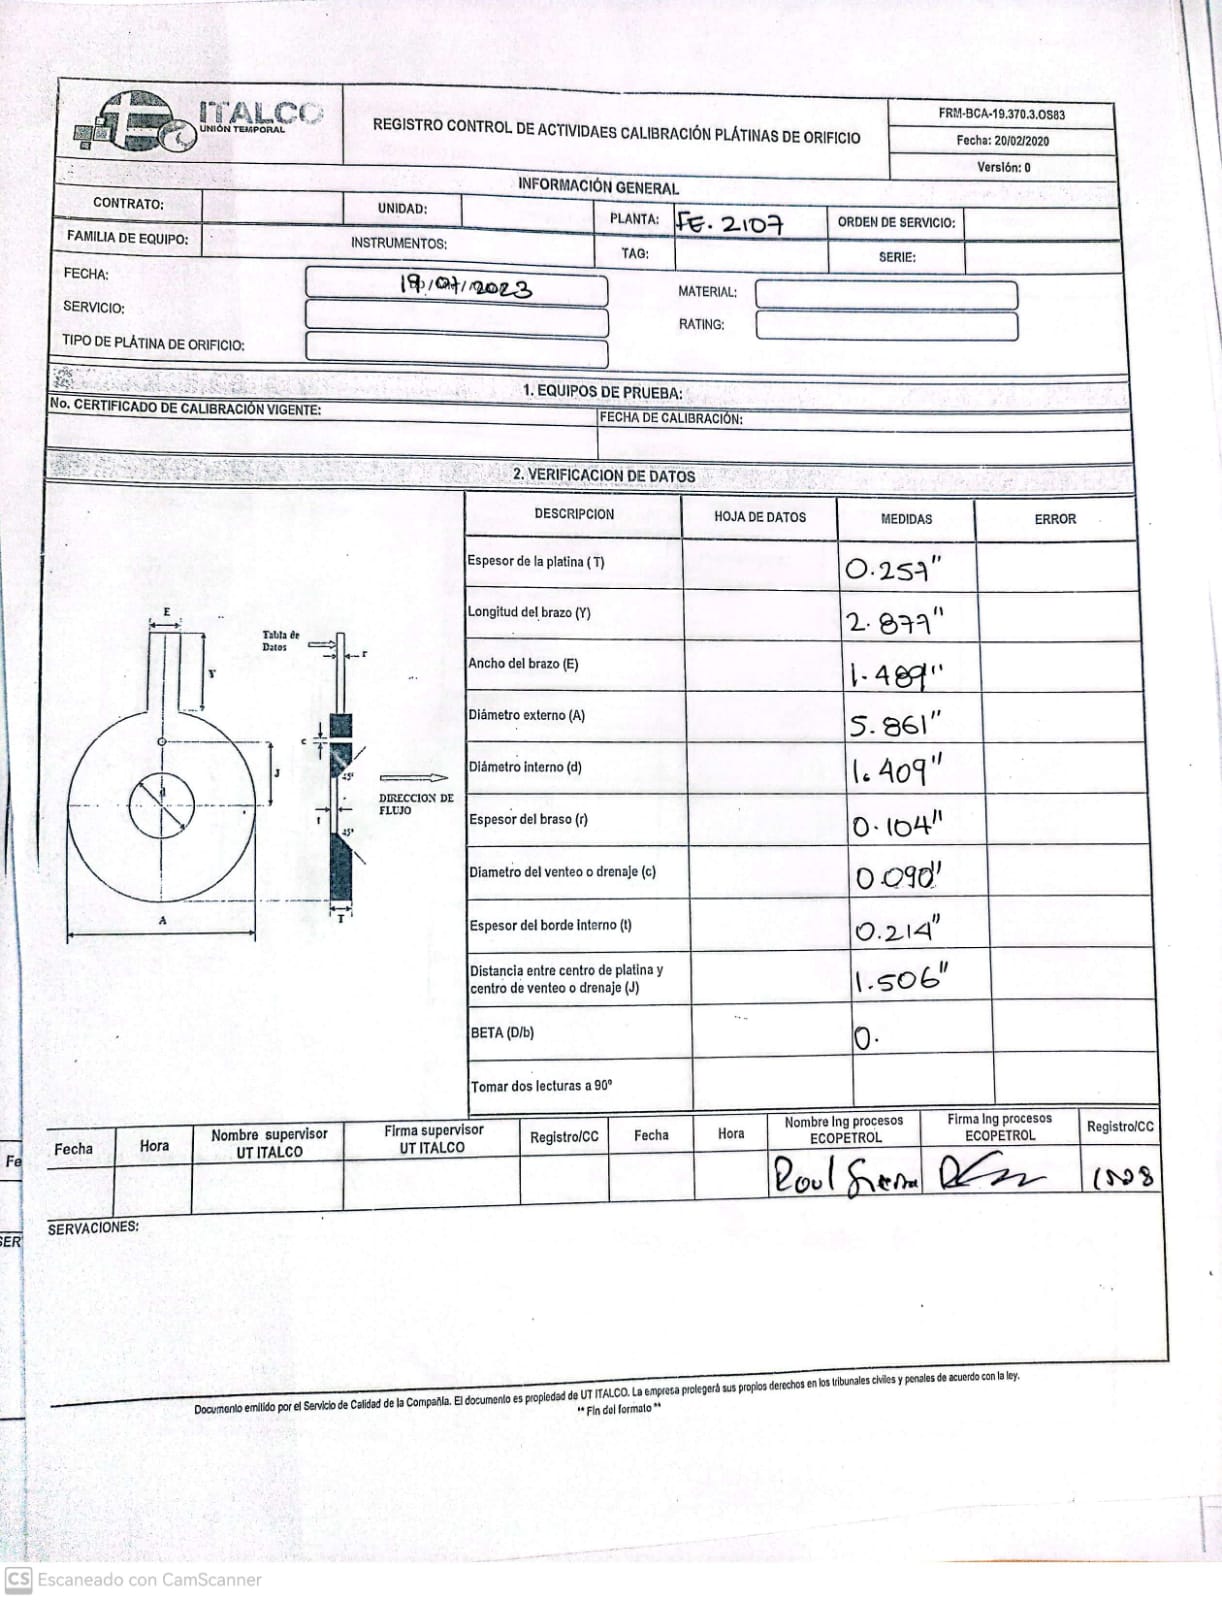 ITALCO
UNIÓN TEMPORAL
REGISTRO CONTROL DE ACTIVIDAES CALIBRACIÓN PLÁTINAS DE ORIFICIO
FRM-BCA-19.370.3.OS83
Fecha: 20/02/2020
Versión: 0
INFORMACIÓN GENERAL
CONTRATO: UNIDAD: PLANTA: FE. 2107 ORDEN DE SERVICIO:
FAMILIA DE EQUIPO: INSTRUMENTOS: TAG: SERIE:
FECHA: 19/07/2023 MATERIAL:
SERVICIO: RATING:
TIPO DE PLÁTINA DE ORIFICIO:
1. EQUIPOS DE PRUEBA:
No. CERTIFICADO DE CALIBRACIÓN VIGENTE: FECHA DE CALIBRACIÓN:
2. VERIFICACION DE DATOS
DESCRIPCION HOJA DE DATOS MEDIDAS ERROR
Espesor de la platina ( T) 0.257"
Longitud del brazo (Y) 2.877"
Ancho del brazo (E) 1.489"
Diámetro externo (A) 5.861"
Diámetro interno (d) 1.409"
Espesor del braso (r) 0.104"
Diametro del venteo o drenaje (c) 0.090"
Espesor del borde interno (t) 0.214"
Distancia entre centro de platina y
centro de venteo o drenaje (J) 1.506"
BETA (D/b) 0.
Tomar dos lecturas a 90º
E
Tabla de
Datos
r
Y
c
J
d
45°
DIRECCION DE
FLUJO
t
45°
A
T
Fecha Hora Nombre supervisor UT ITALCO Firma supervisor UT ITALCO Registro/CC Fecha Hora Nombre Ing procesos ECOPETROL Firma Ing procesos ECOPETROL Registro/CC
Raul Sierra
Fe
SERVACIONES:
SER
Documento emitido por el Servicio de Calidad de la Compañía. El documento es propiedad de UT ITALCO. La empresa protegerá sus propios derechos en los tribunales civiles y penales de acuerdo con la ley.
** Fin del formato **
CS Escaneado con CamScanner